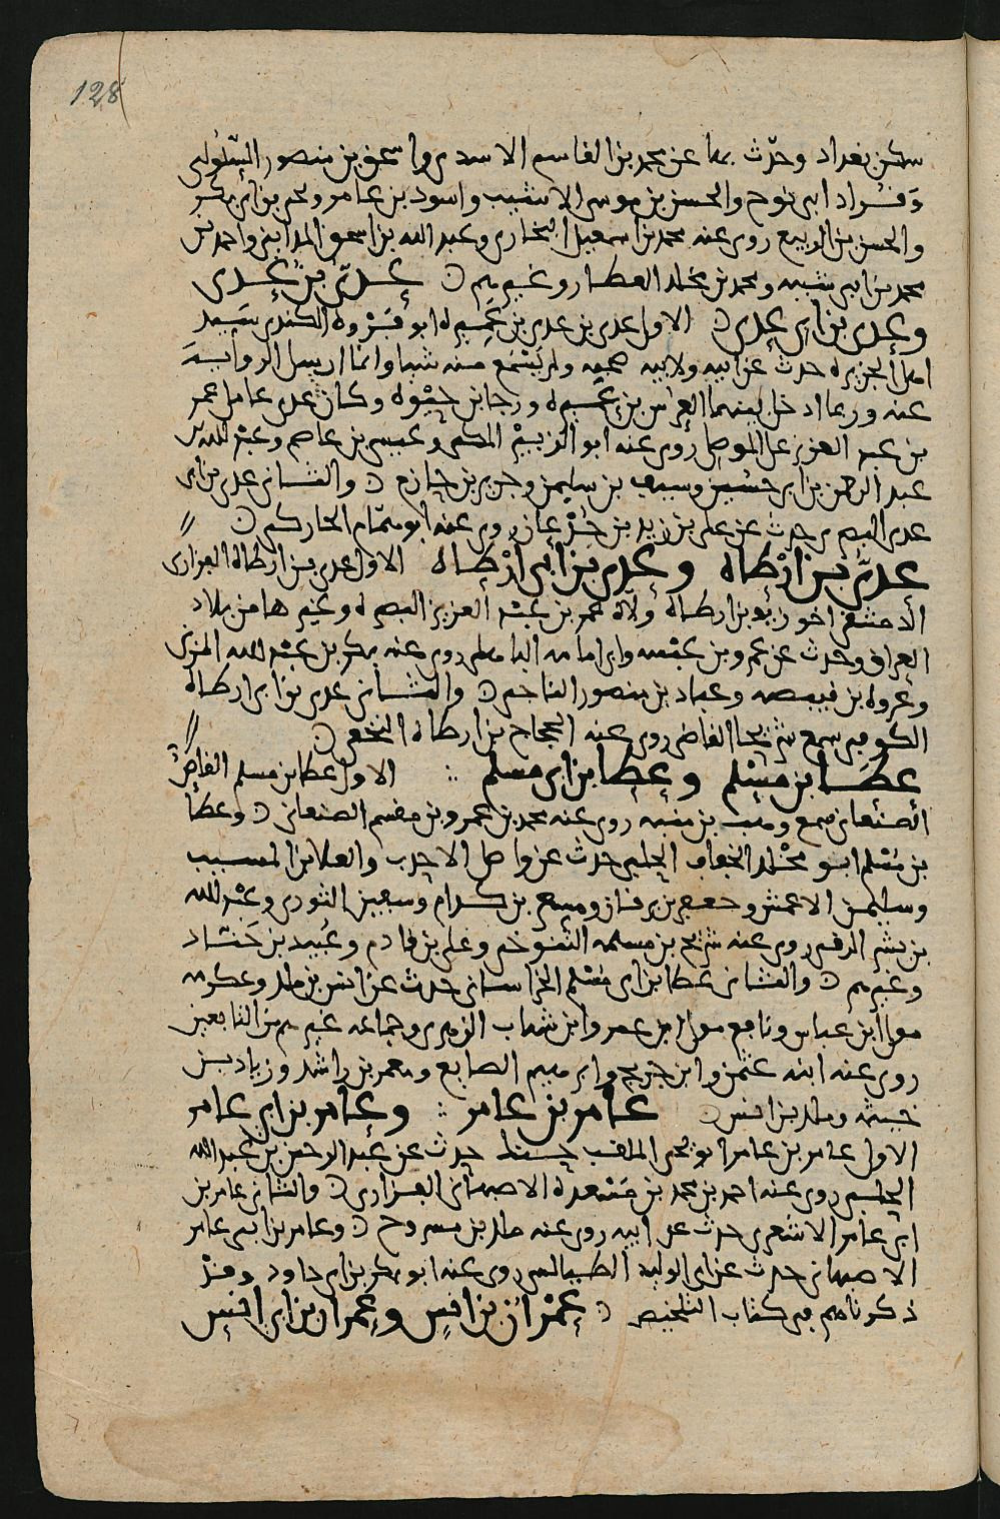 128
سكن بغداد وحدّث بها عن محمد بن القاسم الاسدي واسحق بن منصور السّلولي
وقراد ابي نوح والحسن بن موسى الاشيب واسود بن عامر ويحيى بن ابي بكير
والحسن بن الربيع روى عنه محمد بن اسمعيل البخاري وعبد الله بن اسحق المدايني واحمد بن
محمد بن ابي شيبه ومحمد بن مخلد العطار وغيرهم عديّ بن عدي
وعدي بن ابي عدي الاول عدي بن عدي بن عميره ابو فروه الكندي سيد
اهل الجزيره حدث عن ابيه ولابيه صحبه ولم يسمع منه شيا وانما ارسل الروايه
عنه وربما ادخل بينهما العرس بن عميره ورجا بن حيوه وكان عدي عامل عمر
بن عبد العزيز على الموصل روى عنه ابو الزبير المكي وعيسى بن عاصم وعبد الله بن
عبد الرحمن بن ابي حسين وسيف بن سليمن وجرير بن حازم والثاني عدي بن ابي
عدي البصري حدث عن علي بن زيد بن جدعان روى عنه ابو همّام الخاركي
عديّ بن ارطاه وعدي بن ابي ارطاه الاول عدي بن ارطاه الفزاري
الدمشقي اخو زيد بن ارطاه ولّاه عمر بن عبد العزيز البصره وغيرها من بلاد
العراق وحدث عن عمرو بن عبسه وابي امامه الباهلي روى عنه بكر بن عبد الله المزني
وعروه بن قبيصه وعباد بن منصور الناجي والثاني عدي بن ابي ارطاه
الكوفي سمع شريحا القاضي روى عنه الحجاج بن ارطاه النخعي
عطا بن مسلم وعطا بن ابي مسلم الاول عطا بن مسلم القاضي
الصنعاني سمع وهب بن منبه روى عنه محمد بن عمرو بن مقسم الصنعاني وعطا
بن مسلم ابو مخلد الخفاف الحلبي حدث عن واصل الاحدب والعلا بن المسيب
وسليمن الاعمش وجعفر بن برقان ومسعر بن كدام وسفين الثوري وعبد الله
بن بشر الرقي روى عنه شريح بن مسلمه التنوخي وعلي بن قادم وعبيد بن جناد
وغيرهم والثاني عطا بن ابي مسلم الخراساني حدث عن انس بن ملك وعكرمه
مولى ابن عباس ونافع مولى ابن عمر وابن شهاب الزهري وجماعه غيرهم من التابعين
روى عنه ابنه عثمن وابن جريج وابرهيم الصايغ ومعمر بن راشد وزياد بن
خيثمه وملك بن انس عامر بن عامر وعامر بن ابي عامر
الاول عامر بن عامر ابو يحيى الملقب حدث عن عبد الرحمن بن عبد الله
روى عنه احمد بن محمد بن مسعده الاصبهاني الفزاري والثاني عامر بن
ابي عامر الاشعري حدث عن ابيه روى عنه ملك بن مسروح وعامر بن ابي عامر
الاصبهاني حدث عن ابي الوليد الطيالسي روى عنه ابو بكر بن ابي داود وقد
ذكرناهم في كتاب التلخيص عمران بن انس وعمران بن ابي انس